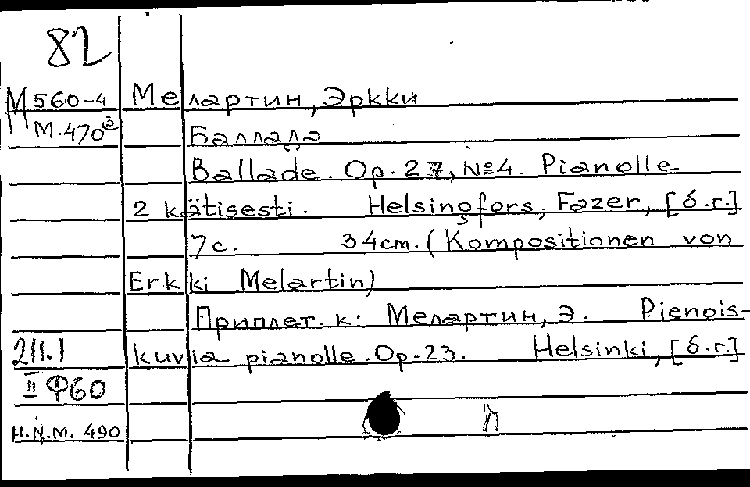 82
М560-4 Мелартин, Эркки
М.470③ Баллада
Ballade. Op. 27, №4. Pianolle
2 kätisesti. Helsingfors, Fazer, [б.г.]
7с. 34см. (Kompositionen von
Erkki Melartin)
Приплет. к: Мелартин, Э. Pienois-
211.1 kuvia pianolle. Op. 23. Helsinki, [б.г.]
II Ф60
Н.Л.М. 490